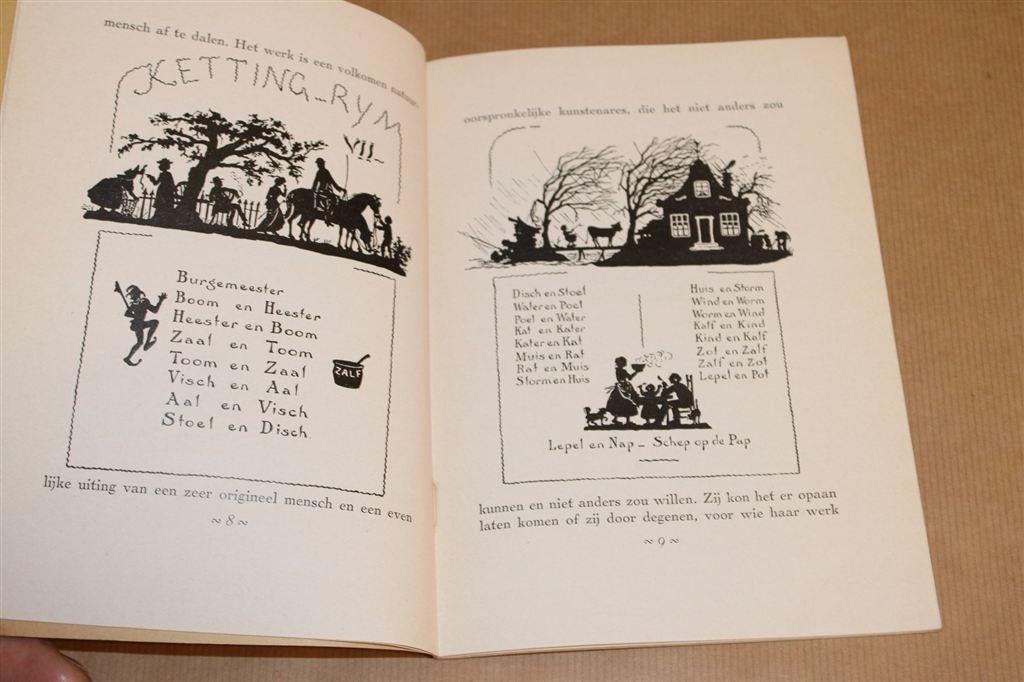 mensch af te dalen. Het werk is een volkomen natuur-
KETTING-RYM
VII-
Burgemeester
Boom en Heester
Heester en Boom
Zaal en Toom
Toom en Zaal
Visch en Aal
Aal en Visch
Stoel en Disch.
ZALF
lijke uiting van een zeer origineel mensch en een even
~8~
oorspronkelijke kunstenares, die het niet anders zou
Disch en Stoel
Water en Poel
Poel en Water
Kat en Kater
Kater en Kat
Muis en Rat
Rat en Muis
Storm en Huis
Huis en Storm
Wind en Worm
Worm en Wind
Kalf en Kind
Kind en Kalf
Zot en Zalf
Zalf en Zot
Lepel en Pot
Lepel en Nap - Schep op de Pap
kunnen en niet anders zou willen. Zij kon het er opaan
laten komen of zij door degenen, voor wie haar werk
~9~